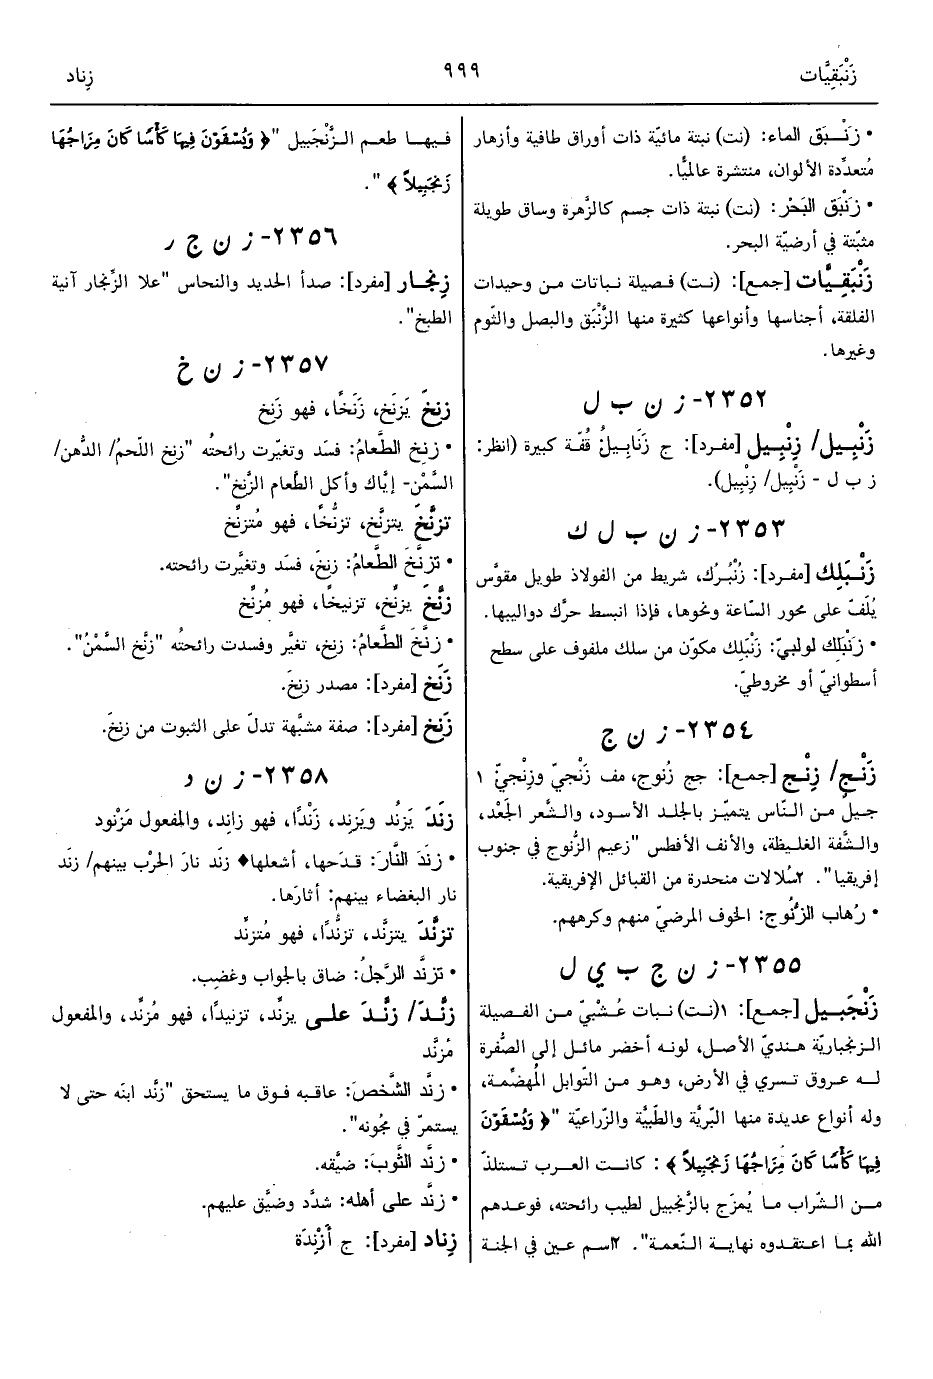 زَنْبَقِيَّات
٩٩٩
زِناد
• زَنْبَق الماء: (نت) نبتة مائيّة ذات أوراق طافية وأزهار
مُتعدِّدة الألوان، منتشرة عالميًّا.
• زَنْبَق البَحْر: (نت) نبتة ذات جسم كالزَّهرة وساق طويلة
مثبّتة في أرضيّة البحر.
زَنْبَقِيَّات [جمع]: (نت) فصيلة نباتات من وحيدات
الفلقة، أجناسها وأنواعها كثيرة منها الزَّنْبَق والبصل والثّوم
وغيرها.
٢٣٥٢- ز ن ب ل
زَنْبِيل/ زِنْبِيل [مفرد]: ج زَنَابِيلُ قُفّة كبيرة (انظر:
ز ب ل - زَنْبِيل/ زِنْبِيل).
٢٣٥٣- ز ن ب ل ك
زَنْبَلِك [مفرد]: زُنْبُرُك، شريط من الفولاذ طويل مقوَّس
يُلَفّ على محور السّاعة ونحوها، فإذا انبسط حرَّك دواليبها.
• زَنْبَلِك لولبيّ: زَنْبَلِك مكوّن من سلك ملفوف على سطح
أسطوانيّ أو مخروطيّ.
٢٣٥٤- ز ن ج
زَنْج/ زِنْج [جمع]: جج زُنوج، مف زَنْجيّ وزِنْجيّ ١
جيلٌ من النّاس يتميّز بالجلد الأسود، والشَّعر الجَعْد،
والشَّفة الغليظة، والأنف الأفطس "زعيم الزُّنوج في جنوب
إفريقيا". ٢سُلالات منحدرة من القبائل الإفريقية.
• رُهاب الزُّنُوج: الخوف المرضيّ منهم وكرههم.
٢٣٥٥- ز ن ج ب ي ل
زَنْجَبيل [جمع]: ١(نت) نبات عُشْبيّ من الفصيلة
الزنجباريّة هنديّ الأصل، لونه أخضر مائل إلى الصُّفرة
له عروق تسري في الأرض، وهو من التّوابل المُهضِّمة،
وله أنواع عديدة منها البرّيَّة والطّبيَّة والزّراعيّة "﴿ وَيُسْقَوْنَ
فِيهَا كَأْسًا كَانَ مِزَاجُهَا زَنجَبِيلاً ﴾ : كانت العرب تستلذّ
من الشّراب ما يُمزَج بالزَّنجبيل لطيب رائحته، فوعدهم
الله بما اعتقدوه نهاية النّعمة". ٢اسم عين في الجنة
فيها طعم الزَّنْجَبيل "﴿ وَيُسْقَوْنَ فِيهَا كَأْسًا كَانَ مِزَاجُهَا
زَنجَبِيلاً ﴾ ".
٢٣٥٦- ز ن ج ر
زِنجار [مفرد]: صدأ الحديد والنحاس "علا الزِّنجار آنية
الطبخ".
٢٣٥٧- ز ن خ
زنِخَ يَزنَخ، زَنَخًا، فهو زَنِخ
• زنِخ الطَّعامُ: فسَد وتغيّرت رائحتُه "زنِخ اللّحمُ/ الدُّهن/
السَّمْن- إيَّاك وأكل الطَّعام الزَّنِخ".
تزنَّخَ يتزنَّخ، تزنُّخًا، فهو مُتزنِّخ
• تزنَّخَ الطَّعامُ: زنِخَ، فسَد وتغيَّرت رائحته.
زنَّخَ يزنِّخ، تزنيخًا، فهو مُزنِّخ
• زنَّخَ الطَّعامُ: زنِخ، تغيَّر وفسدت رائحتُه "زنَّخ السَّمْنُ".
زَنَخ [مفرد]: مصدر زنِخَ.
زَنِخ [مفرد]: صفة مشبَّهة تدلّ على الثبوت من زنِخَ.
٢٣٥٨- ز ن د
زنَدَ يَزنُد ويَزنِد، زَنْدًا، فهو زانِد، والمفعول مَزْنود
• زنَدَ النَّارَ: قدَحها، أشعلها♦ زنَد نارَ الحَرْب بينهم/ زنَد
نار البغضاء بينهم: أثارَها.
تزنَّدَ يتزنَّد، تزنُّدًا، فهو مُتزنِّد
• تزنَّد الرَّجلُ: ضاق بالجواب وغضِب.
زنَّدَ/ زنَّدَ على يزنِّد، تزنيدًا، فهو مُزنِّد، والمفعول
مُزنَّد
• زنَّد الشَّخصَ: عاقبه فوق ما يستحق "زنَّد ابنَه حتى لا
يستمرّ في مجُونه".
• زنَّد الثَّوبَ: ضيَّقه.
• زنَّد على أهله: شدَّد وضيَّق عليهم.
زِناد [مفرد]: ج أَزْنِدَة